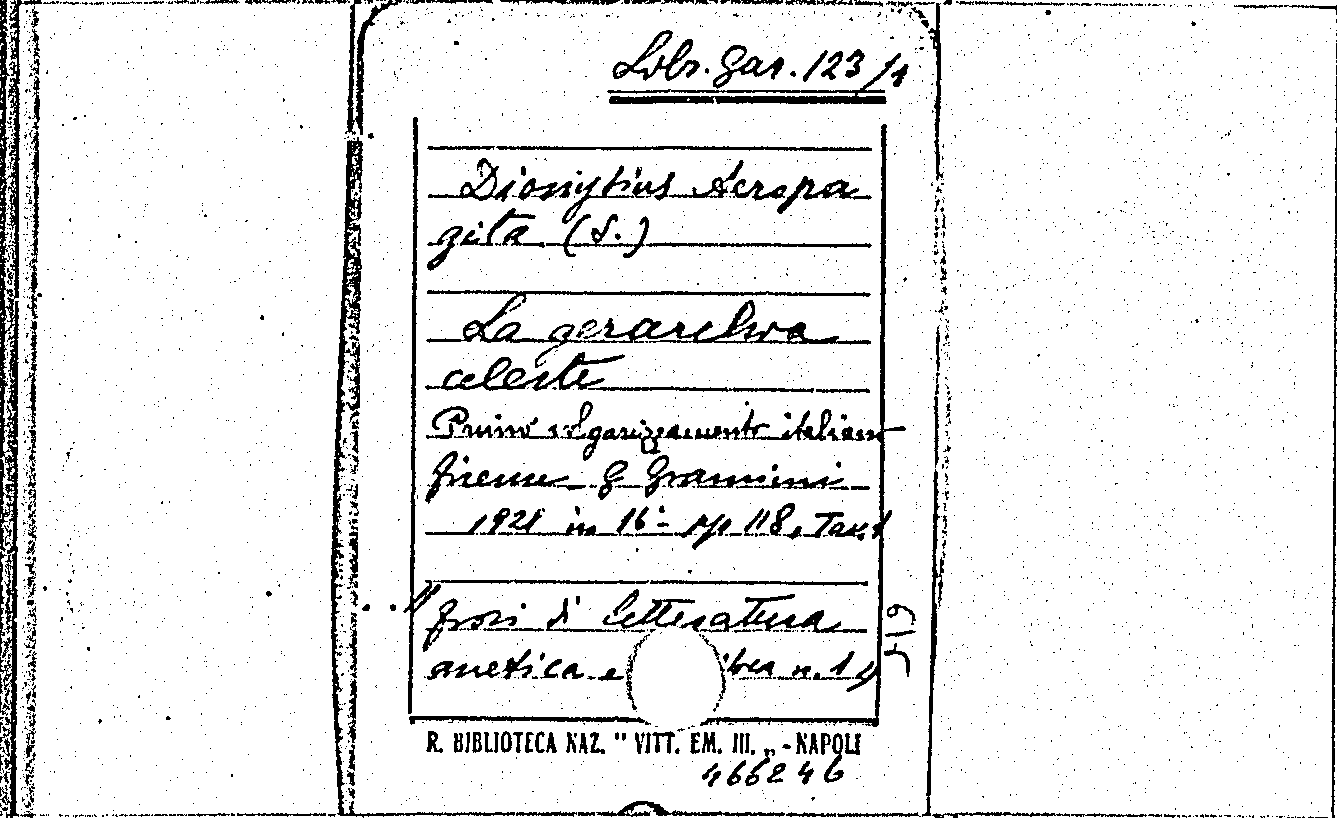 Libr. Gar. 123/1
Dionysius Aeropa
gita (S.)
La gerarchia
celeste
Primo volgarizzamento italiano
Firenze G Giannini
1921 in 16° pp 118, Tav. 1
"Fiori di letteratura
ascetica e n. 1"
R. BIBLIOTECA NAZ. " VITT. EM. III. „ - NAPOLI
466246